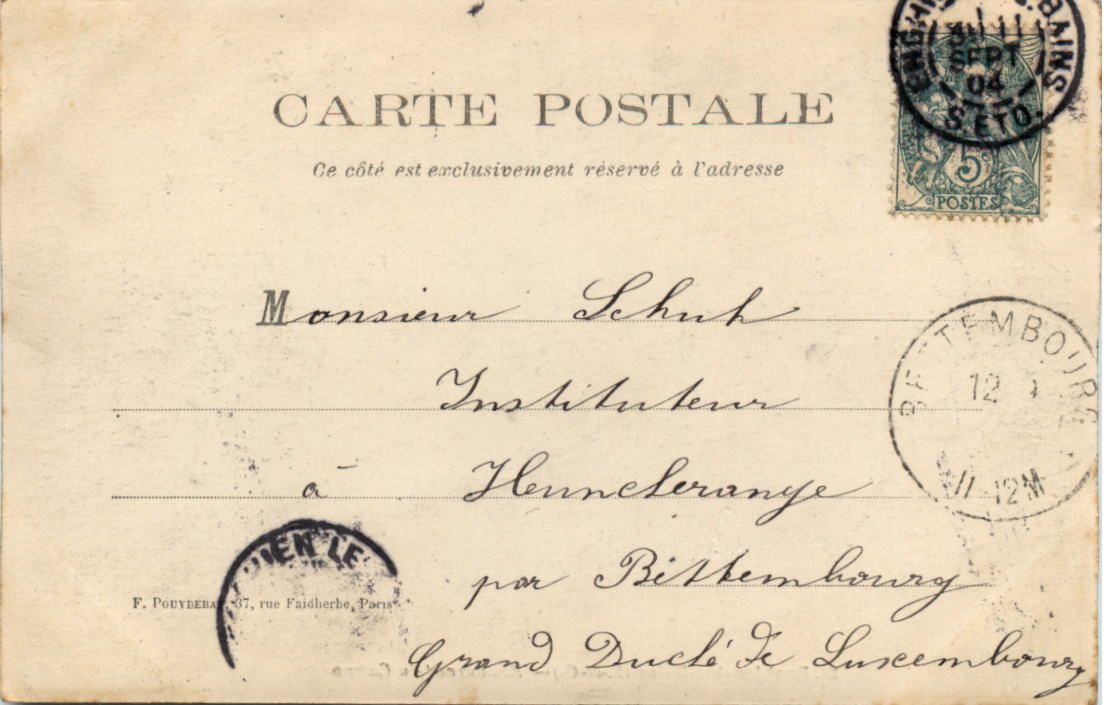 CARTE POSTALE
Ce côté est exclusivement réservé à l'adresse
BAINS
SEPT
04
S. ET O.
5
POSTES
Monsieur Schuh
Instituteur
à Hunclerange
par Bettembourg
Grand Duché de Luxembourg
BETTEMBOURG
12
11-12M
IEN LE
F. POUYDEBAT, 37, rue Faidherbe, Paris